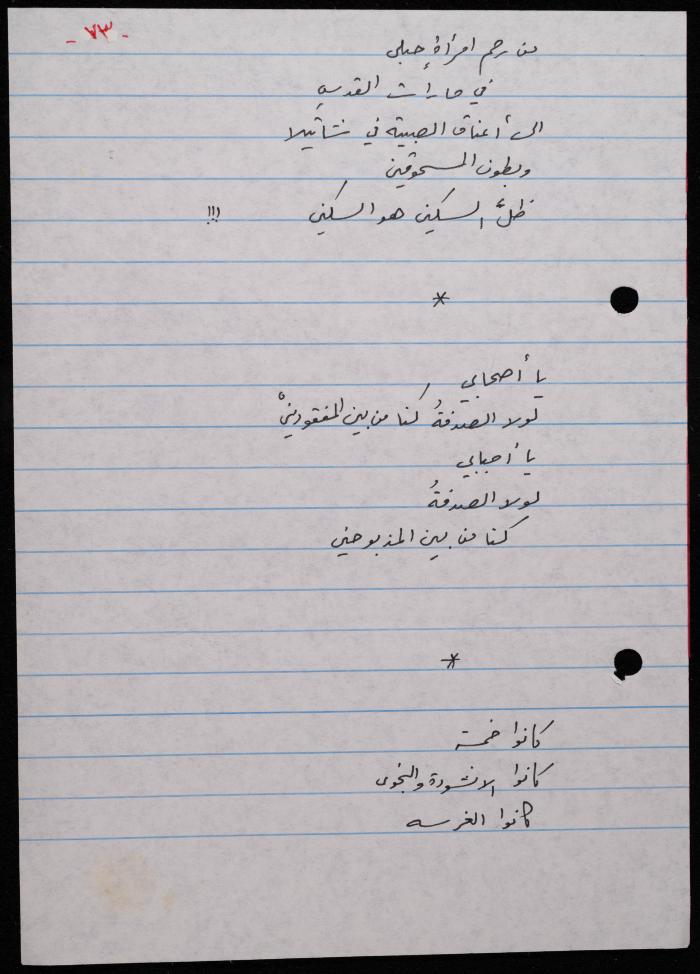 - ٧٣ -
من رحم امرأةٍ حبلى
في حارات القدس
الى أعناق الصبية في شاتيلا
وبطون المسحوقين
ظلَّ السكين هو السكين !!!
*
يا أصحابي
لولا الصدفةُ كنا من بين المفقودينْ
يا أحبابي
لولا الصدفةُ
كنا من بين المذبوحين
*
كانوا خمسة
كانوا الانشودة والنجوى
كانوا الغرسه